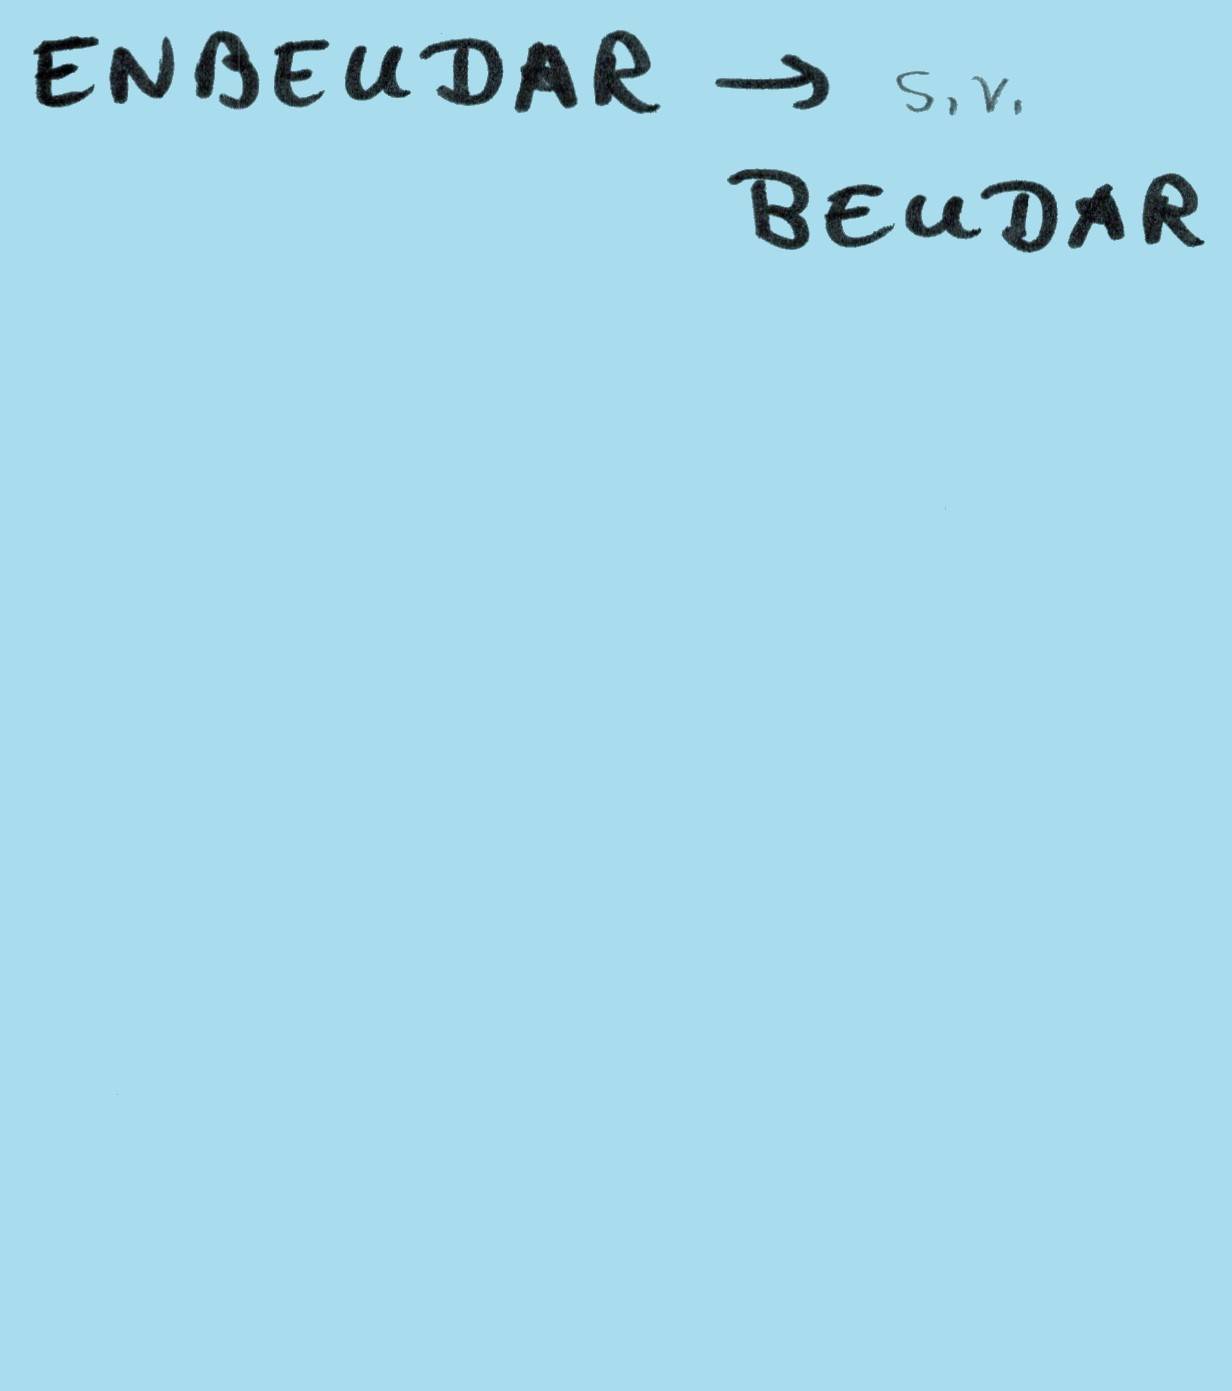 ENBEUDAR → s.v.
BEUDAR